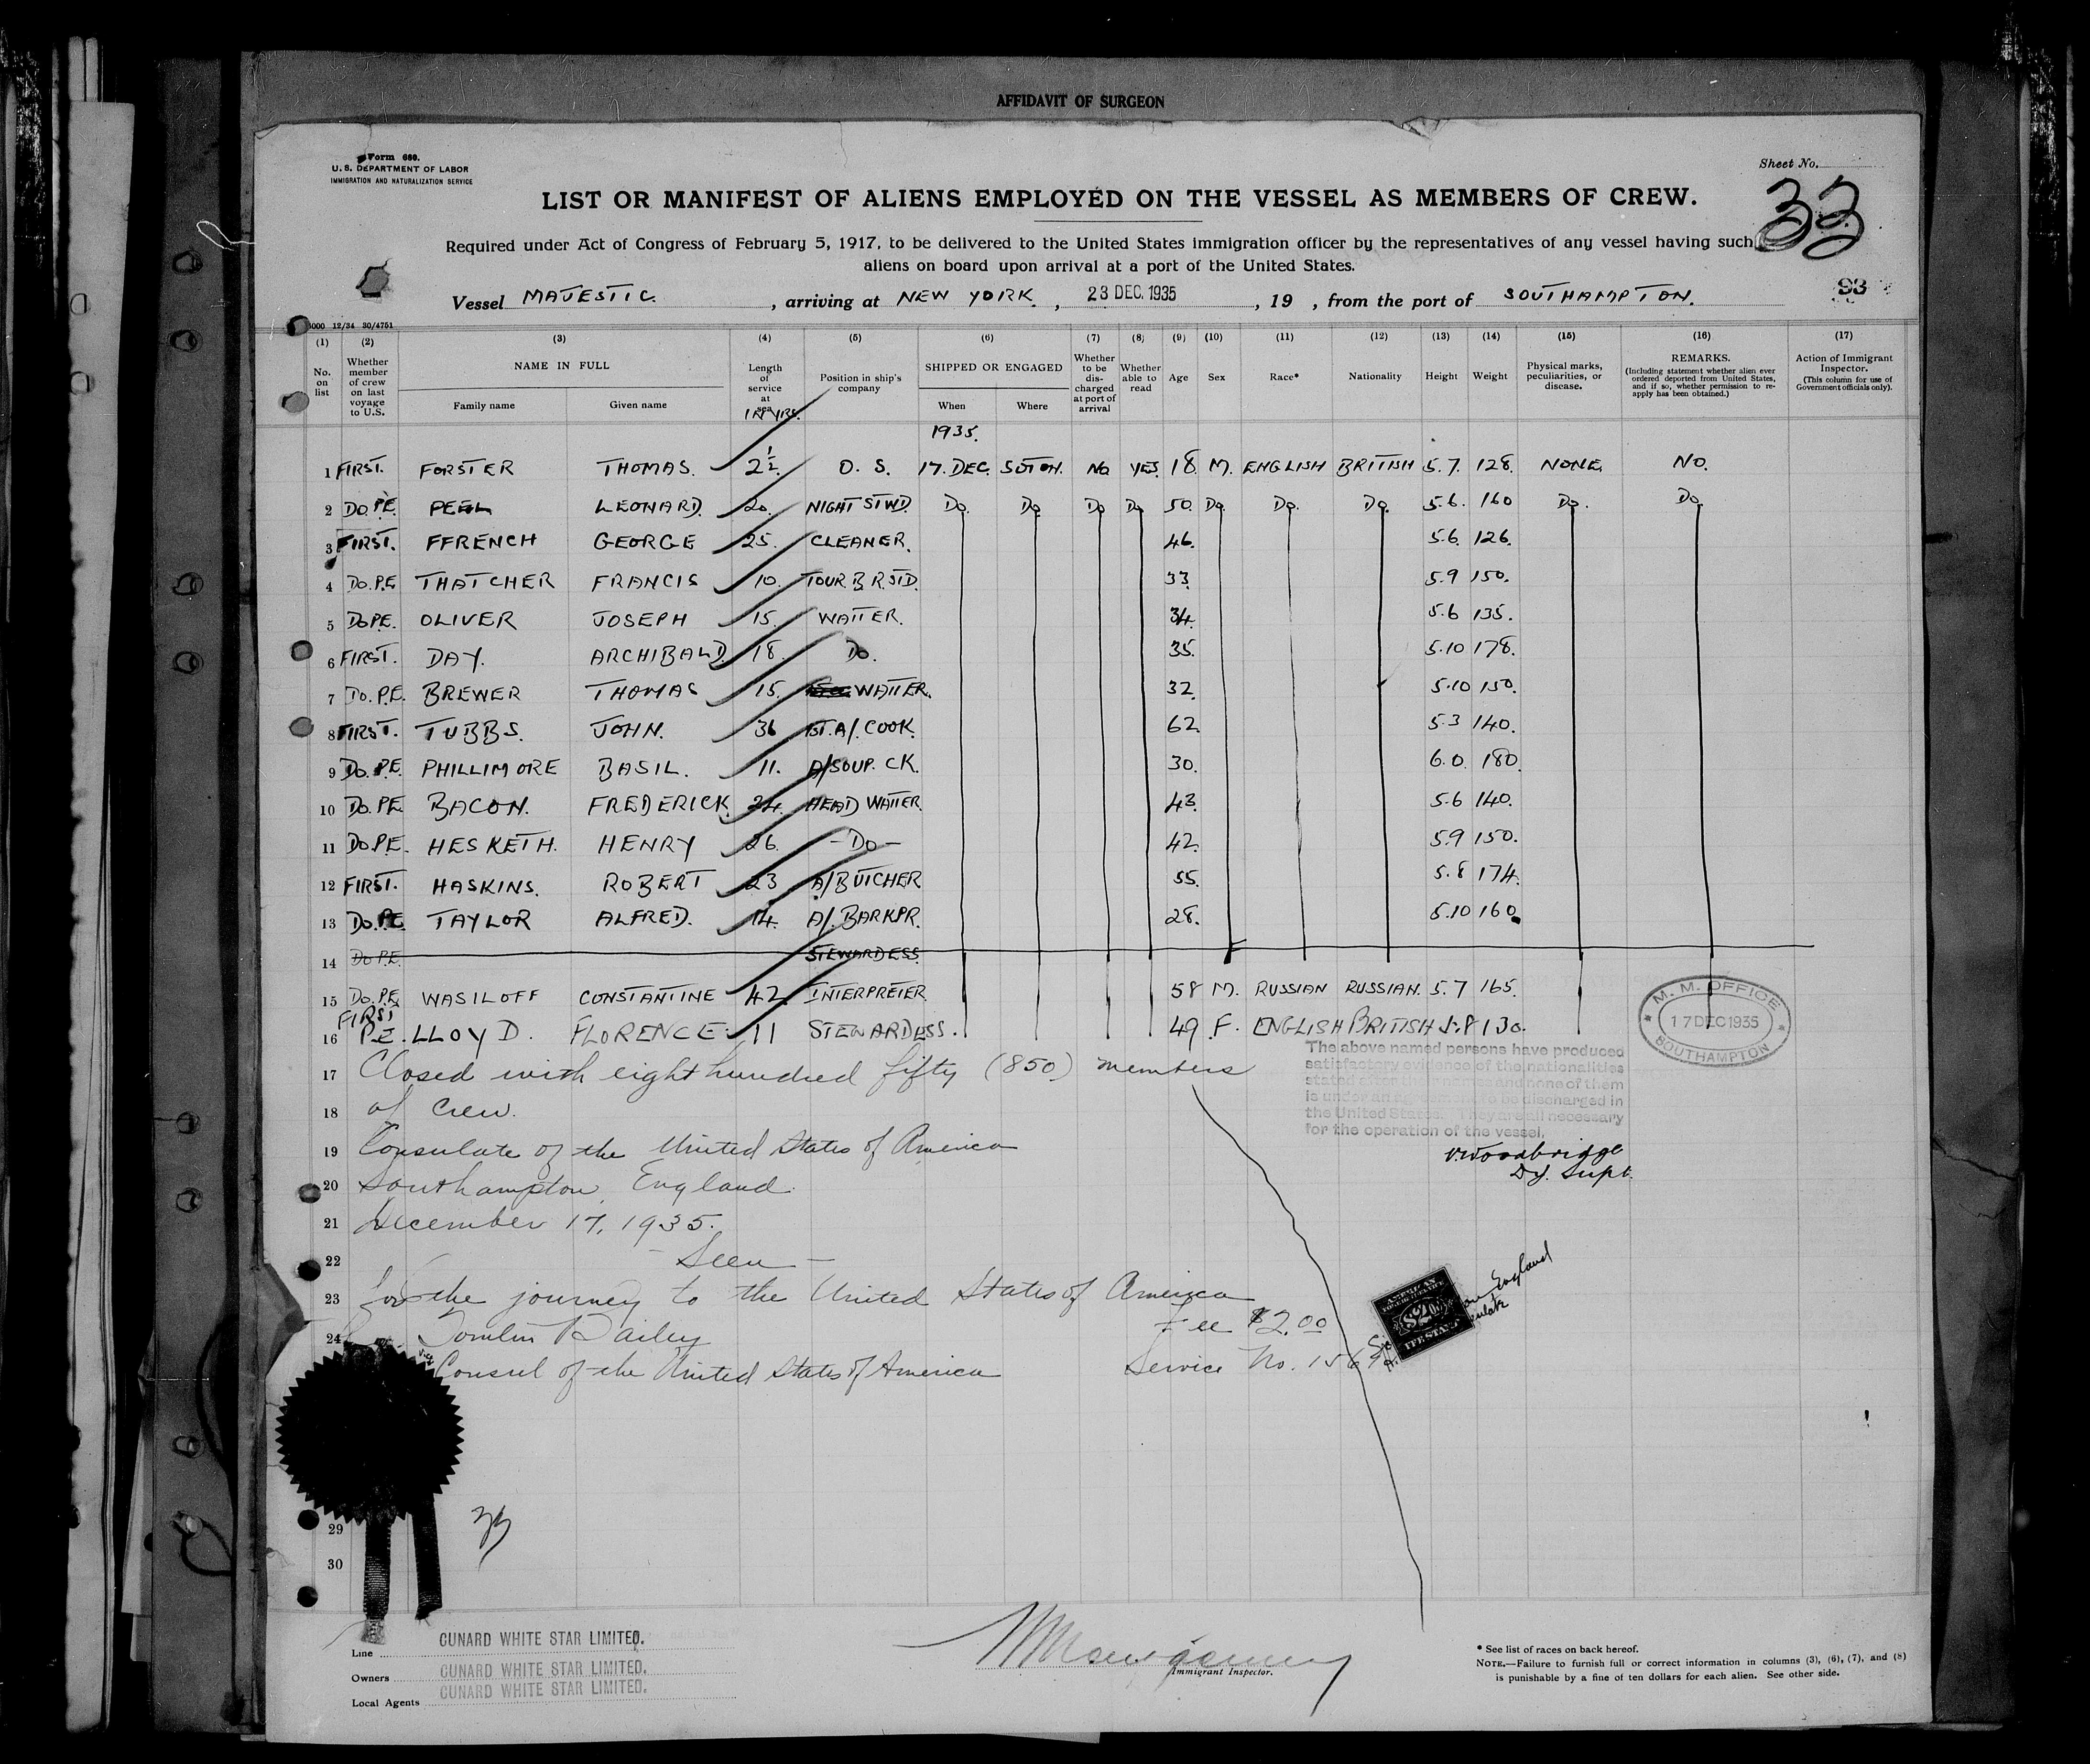 AFFIDAVIT OF SURGEON
Form 680.
U. S. DEPARTMENT OF LABOR
IMMIGRATION AND NATURALIZATION SERVICE
Sheet No.
33
LIST OR MANIFEST OF ALIENS EMPLOYED ON THE VESSEL AS MEMBERS OF CREW.
Required under Act of Congress of February 5, 1917, to be delivered to the United States immigration officer by the representatives of any vessel having such
aliens on board upon arrival at a port of the United States.
93
Vessel MAJESTIC. , arriving at NEW YORK. , 23 DEC. 1935 , 19 , from the port of SOUTHAMPTON.
5000 12/34 30/4751
(1) (2) (3) (4) (5) (6) (7) (8) (9) (10) (11) (12) (13) (14) (15) (16) (17)
No. on list Whether member of crew on last voyage to U.S. NAME IN FULL Family name Given name Length of service at sea IN YRS. Position in ship's company SHIPPED OR ENGAGED When Where Whether to be discharged at port of arrival Whether able to read Age Sex Race* Nationality Height Weight Physical marks, peculiarities, or disease. REMARKS. (Including statement whether alien ever ordered deported from United States, and if so, whether permission to reapply has been obtained.) Action of Immigrant Inspector. (This column for use of Government officials only).
1935.
1 FIRST. FORSTER THOMAS. 2½ O. S. 17. DEC. SOTON. NO YES 18 M. ENGLISH BRITISH 5.7. 128. NONE. NO.
2 DO. P.E. PEEL LEONARD. 20. NIGHT STWD. DO. DO DO DO 50. DO. DO. DO. 5.6. 160 DO. DO.
3 FIRST. FFRENCH GEORGE 25. CLEANER. 46. 5.6. 126.
4 DO. P.E. THATCHER FRANCIS 10. TOUR B.R. STD. 33 5.9 150.
5 DO P.E. OLIVER JOSEPH 15. WAITER. 34. 5.6 135.
6 FIRST. DAY. ARCHIBALD. 18. DO. 35. 5.10 178.
7 DO. P.E. BREWER THOMAS 15. WAITER. 32. 5.10 150.
8 FIRST. TUBBS. JOHN. 36 1ST. A/. COOK. 62 5.3 140.
9 DO. P.E. PHILLIMORE BASIL. 11. A/SOUP. CK. 30. 6.0 180.
10 DO. P.E. BACON. FREDERICK. 24. HEAD WAITER. 43. 5.6 140.
11 DO. P.E. HESKETH. HENRY 26. - DO - 42. 5.9 150.
12 FIRST. HASKINS. ROBERT 23 A/BUTCHER 55. 5.8 174.
13 DO. P.E. TAYLOR ALFRED. 14. A/. BARKPR. 28. 5.10 160.
14 DO P.E. STEWARDESS. F
15 DO. P.E. WASILOFF CONSTANTINE 42 INTERPRETER 58 M. RUSSIAN RUSSIAN. 5.7 165.
16 FIRST P.E. LLOYD. FLORENCE 11 STEWARDESS. 49 F. ENGLISH BRITISH 5.8 130.
M. M. OFFICE
17 DEC 1935
SOUTHAMPTON
The above named persons have produced
satisfactory evidence of the nationalities
stated after their names and none of them
is under an agreement to be discharged in
the United States. They are all necessary
for the operation of the vessel.
Woodbridge
Dy. Supt.
17 Closed with eight hundred fifty (850) members
18 of crew.
19 Consulate of the United States of America
20 Southampton, England.
21 December 17, 1935.
22 - Seen -
23 for the journey to the United States of America
24 Tomlin Bailey Fee $2.00
Consul of the United States of America Service No. 156
AMERICAN
$2.00
FEE STAMP
England
29
30
33
Line CUNARD WHITE STAR LIMITED.
Owners CUNARD WHITE STAR LIMITED.
Local Agents CUNARD WHITE STAR LIMITED.
Immigrant Inspector.
* See list of races on back hereof.
NOTE.—Failure to furnish full or correct information in columns (3), (6), (7), and (8)
is punishable by a fine of ten dollars for each alien. See other side.